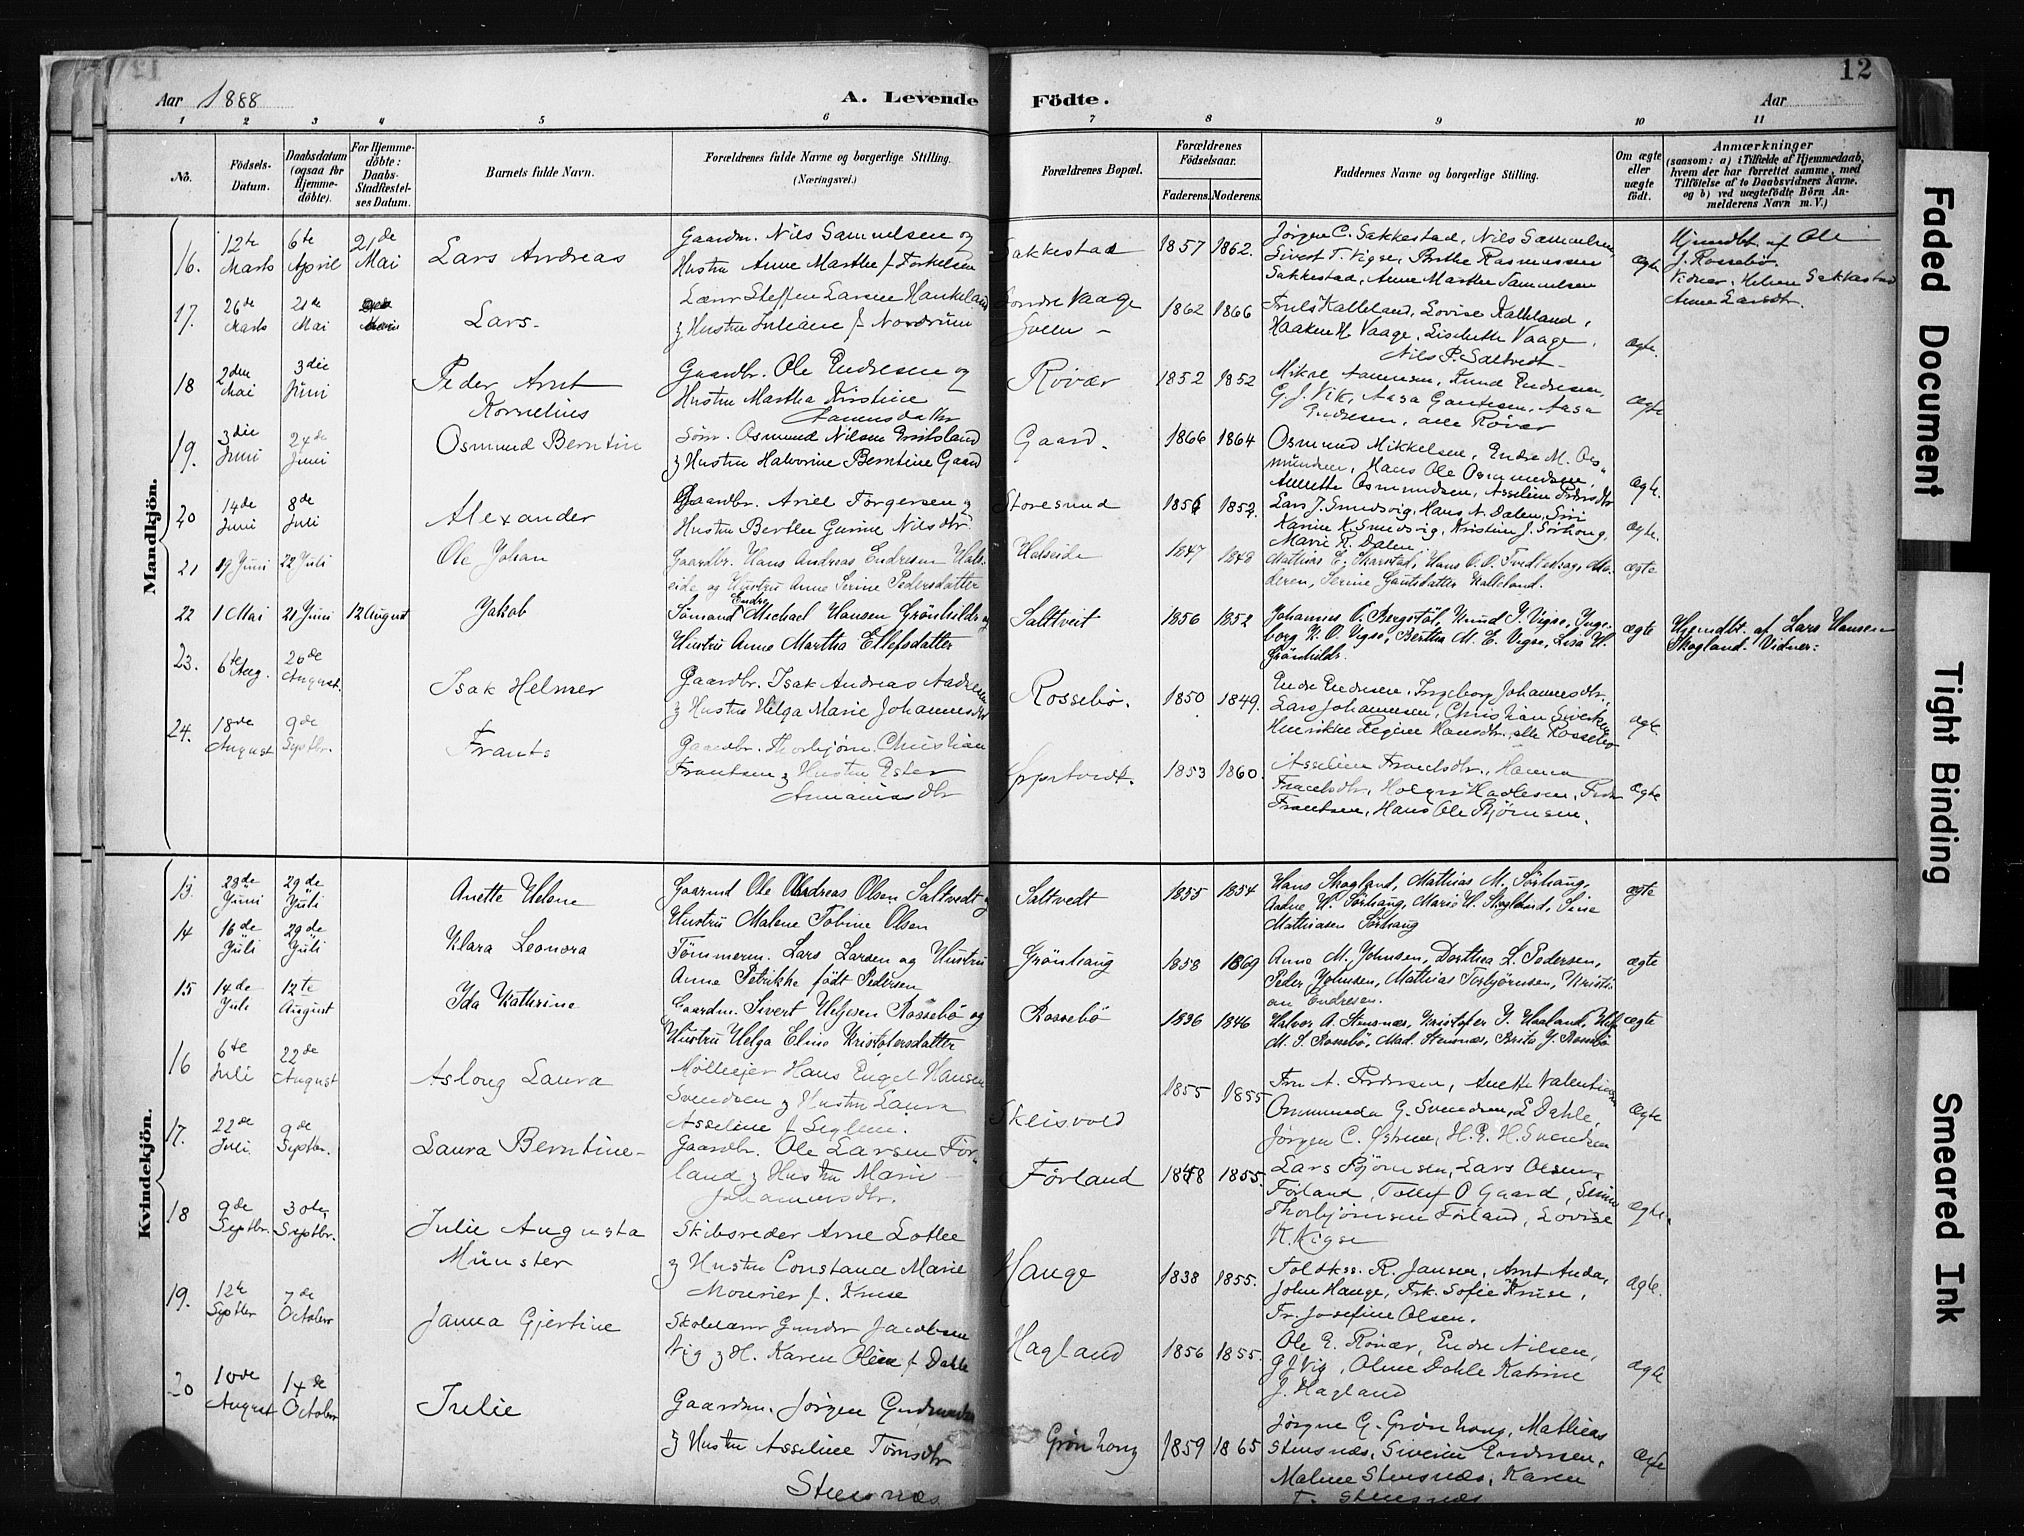 12
Aar 1888
A. Levende Födte.
Aar
1 2 3 4 5 6 7 8 9 10 11
No.
Födsels-Datum.
Daabsdatum (ogsaa for Hjemme-döbte).
For Hjemme-döbte: Daabs-Stadfæstel-ses Datum.
Barnets fulde Navn.
Forældrenes fulde Navne og borgerlige Stilling.
(Næringsvei.)
Forældrenes Bopæl.
Forældrenes Födselsaar.
Faderens.
Moderens.
Faddernes Navne og borgerlige Stilling.
Om ægte eller uægte födt.
Anmærkninger
(saasom: a) i Tilfælde af Hjemmedaab,
hvem der har forrettet samme, med
Tilföielse af to Daabsvidners Navne,
og b) ved uægtefödte Börn An-
melderens Navn m. V.)
Mandkjön.
16. 12te Marts 6te April 21de Mai Lars Andreas
Gaardm. Nils Samuelsen og
Hustru Anne Marthe f. Torkelsen
Sakkestad 1857 1862.
Jørgen C. Sakkestad, Nils Samuelsen,
Sivert T. Vigse, Birthe Rasmussen
Sakkestad, Anne Marthe Samuelsen
ægte
Hjemdbt. af Ole
J. Rossebø.
Vidner. Helene Sakkestad
Anne Larsdtr.
17. 26de Marts 21de Mai Lars
Steffen Larsen Haukeland
og Hustru Juliane f. Nordrum
Søndre Vaage
Sveen
1862 1866
Kalleland, Lovise Kalleland,
Haaken H. Vaage, Liselette Vaage,
Nils P. Saltvedt
ægte.
18 2den Mai 3die Juni Peder Arnt
Kornelius
Gaardbr. Ole Endresen og
Hustru Martha Kirstine
Røvær 1852 1852
Endresen,
G. J. Vik, Aasa Gautesen, Aasa
Endresen, alle Røvær
ægte
19. 3die Juni 24de Juni Osmund Berntin
Osmund Nilsen
og Hustru Halvorine Berntine Gaard
Gaard. 1866 1864
Osmund Mikkelsen, Endre M. Os-
mundsen, Hans Ole Osmundsen,
Annette Osmundsen, Asseline
ægte.
20 14de Juni 8de Juli Alexander
Gaardbr. Ariel Torgersen og
Hustru Berthe Gurine Nilsdtr.
Storesund 1856 1852.
Lars J. Smedsvig, Hans N. Dalen, Siri
Karine K. Smedsvig, Kristine J. Sørhoug,
Marie R. Dalen
ægte.
21 19 Juni 22 Juli Ole Johan
Gaardbr. Hans Andreas Endresen Hals-
eide og Hustru Anne Serine Pedersdatter
Halseide 1847 1848
Mathias E. Skarstad, Hans O. O.
deren, Serine Gautsdatter Kalleland.
ægte
22 1 Mai 21 Juni 12 August Jakob
Sömand Endre Michael Hansen Grönhildr og
Hustru Anne Martha Ellefsdatter
Saltveit 1856 1852
Johannes O. Bergstöl, Knud J. Vigse, Inge-
borg K. O. Vigse, Bertha M. E. Vigse, Lisa H.
Grönhildr.
ægte
Hjemdbt. af Lars Hansen
Skogland. Vidner:
23. 6te Aug. 26de August. Isak Helmer
Gaardbr. Isak Andreas
og Hustru Helga Marie Johannesdtr
Rossebø. 1850 1849.
Endre Endresen, Ingeborg Johannesdtr,
Lars Johannesen, Christian
Henrikke Regine Hansdtr, alle Rossebø
ægte
24. 18de August 9de Septbr. Frants
Gaardbr. Thorbjørn Christian
Frantsen og Hustru Ester
1853 1860.
Asseline Frantsdtr., Hanna
Frantsdtr,
Frantsen, Hans Ole Bjørnsen.
ægte
Kvindekjön.
13 23de Juni 29de Juli Anette Helene
Gaarmd Ole Andreas Olsen Saltvedt og
Hustru Malene Tobine Olsen
Saltvedt 1855 1854
Hans Skogland, Mathias M. Sörhaug,
Aadne H. Sörhaug, Marie H. Skogland, Sine
Mathiasen Sörhaug
ægte
14 16de Juli 29de Juli Klara Leonora
Tömmerm. Lars Larsen og Hustru
Anne Petrikke födt Pedersen
Grönhaug 1858 1869
Anne M. Johnsen, Dorthea L. Pedersen,
Peder Johnsen, Mathias Torbjørnsen, Kristi-
an Endresen.
ægte
15 14de Juli 12te August Ida Kathrine
Gaardm. Sivert Helgesen Rossebö og
Hustru Helga Eline Kristofersdatter
Rossebö 1836 1846
Halvor A. Stensnæs, Kristofer J. Haaland,
M. S. Rossebö, Mad. Stensnæs, Brita J. Rossebö
ægte
16 6te Juli 22de August Aslong Laura
Mølleejer Hans Engel Hansen
Svendsen og Hustru Laura
Asseline f. Seglem.
Skeisvold 1855 1855
Fru A. Pedersen, Anette Valentinsen
Ommunda G. Svendsen, L Dahle,
Jørgen C. Østrem, H. P. H. Svendsen
ægte
17. 22de Juli. 9de Septbr. Laura Berntine
Gaardbr. Ole Larsen Før-
land og Hustru Marie
Johannesdtr.
Førland 1848 1855.
Lars Bjørnsen, Lars Olsen
Førland, Tollef O Gaard,
Thorbjørnsen Førland, Lovise
K. Vigse
ægte.
18 9de Septbr. 30te Septbr. Julie Augusta
Münster
Skibsreder Arne Lothe
og Hustru Constance Marie
Mourier f. Kruse
Hauge 1838 1855.
Toldkss. R. Jansen, Arnt Anda,
John Hauge, Frk. Sofie Kruse,
Fr. Josefine Olsen.
ægte.
19. 12te Septbr 7de October Janna Gjertine
Skolelærer Gunder Jacobsen
Vig og H. Karen Oline f. Dahle
Hagland 1856 1855.
Ole E. Røvær, Endre Nilsen,
G J Vig, Oline Dahle Katrine
J. Hagland
ægte
20 10de August 14de October Julie
Gaardm. Jørgen Gudmundsen
og Hustru Asseline Tønnesdtr
Stensnæs
Grønhoug 1859 1865
Jørgine G. Grønhoug, Mathias
Stensnæs, Siverine Endresen,
Malene Stensnæs, Karen
T. Stensnæs
ægte
Faded Document
Tight Binding
Smeared Ink